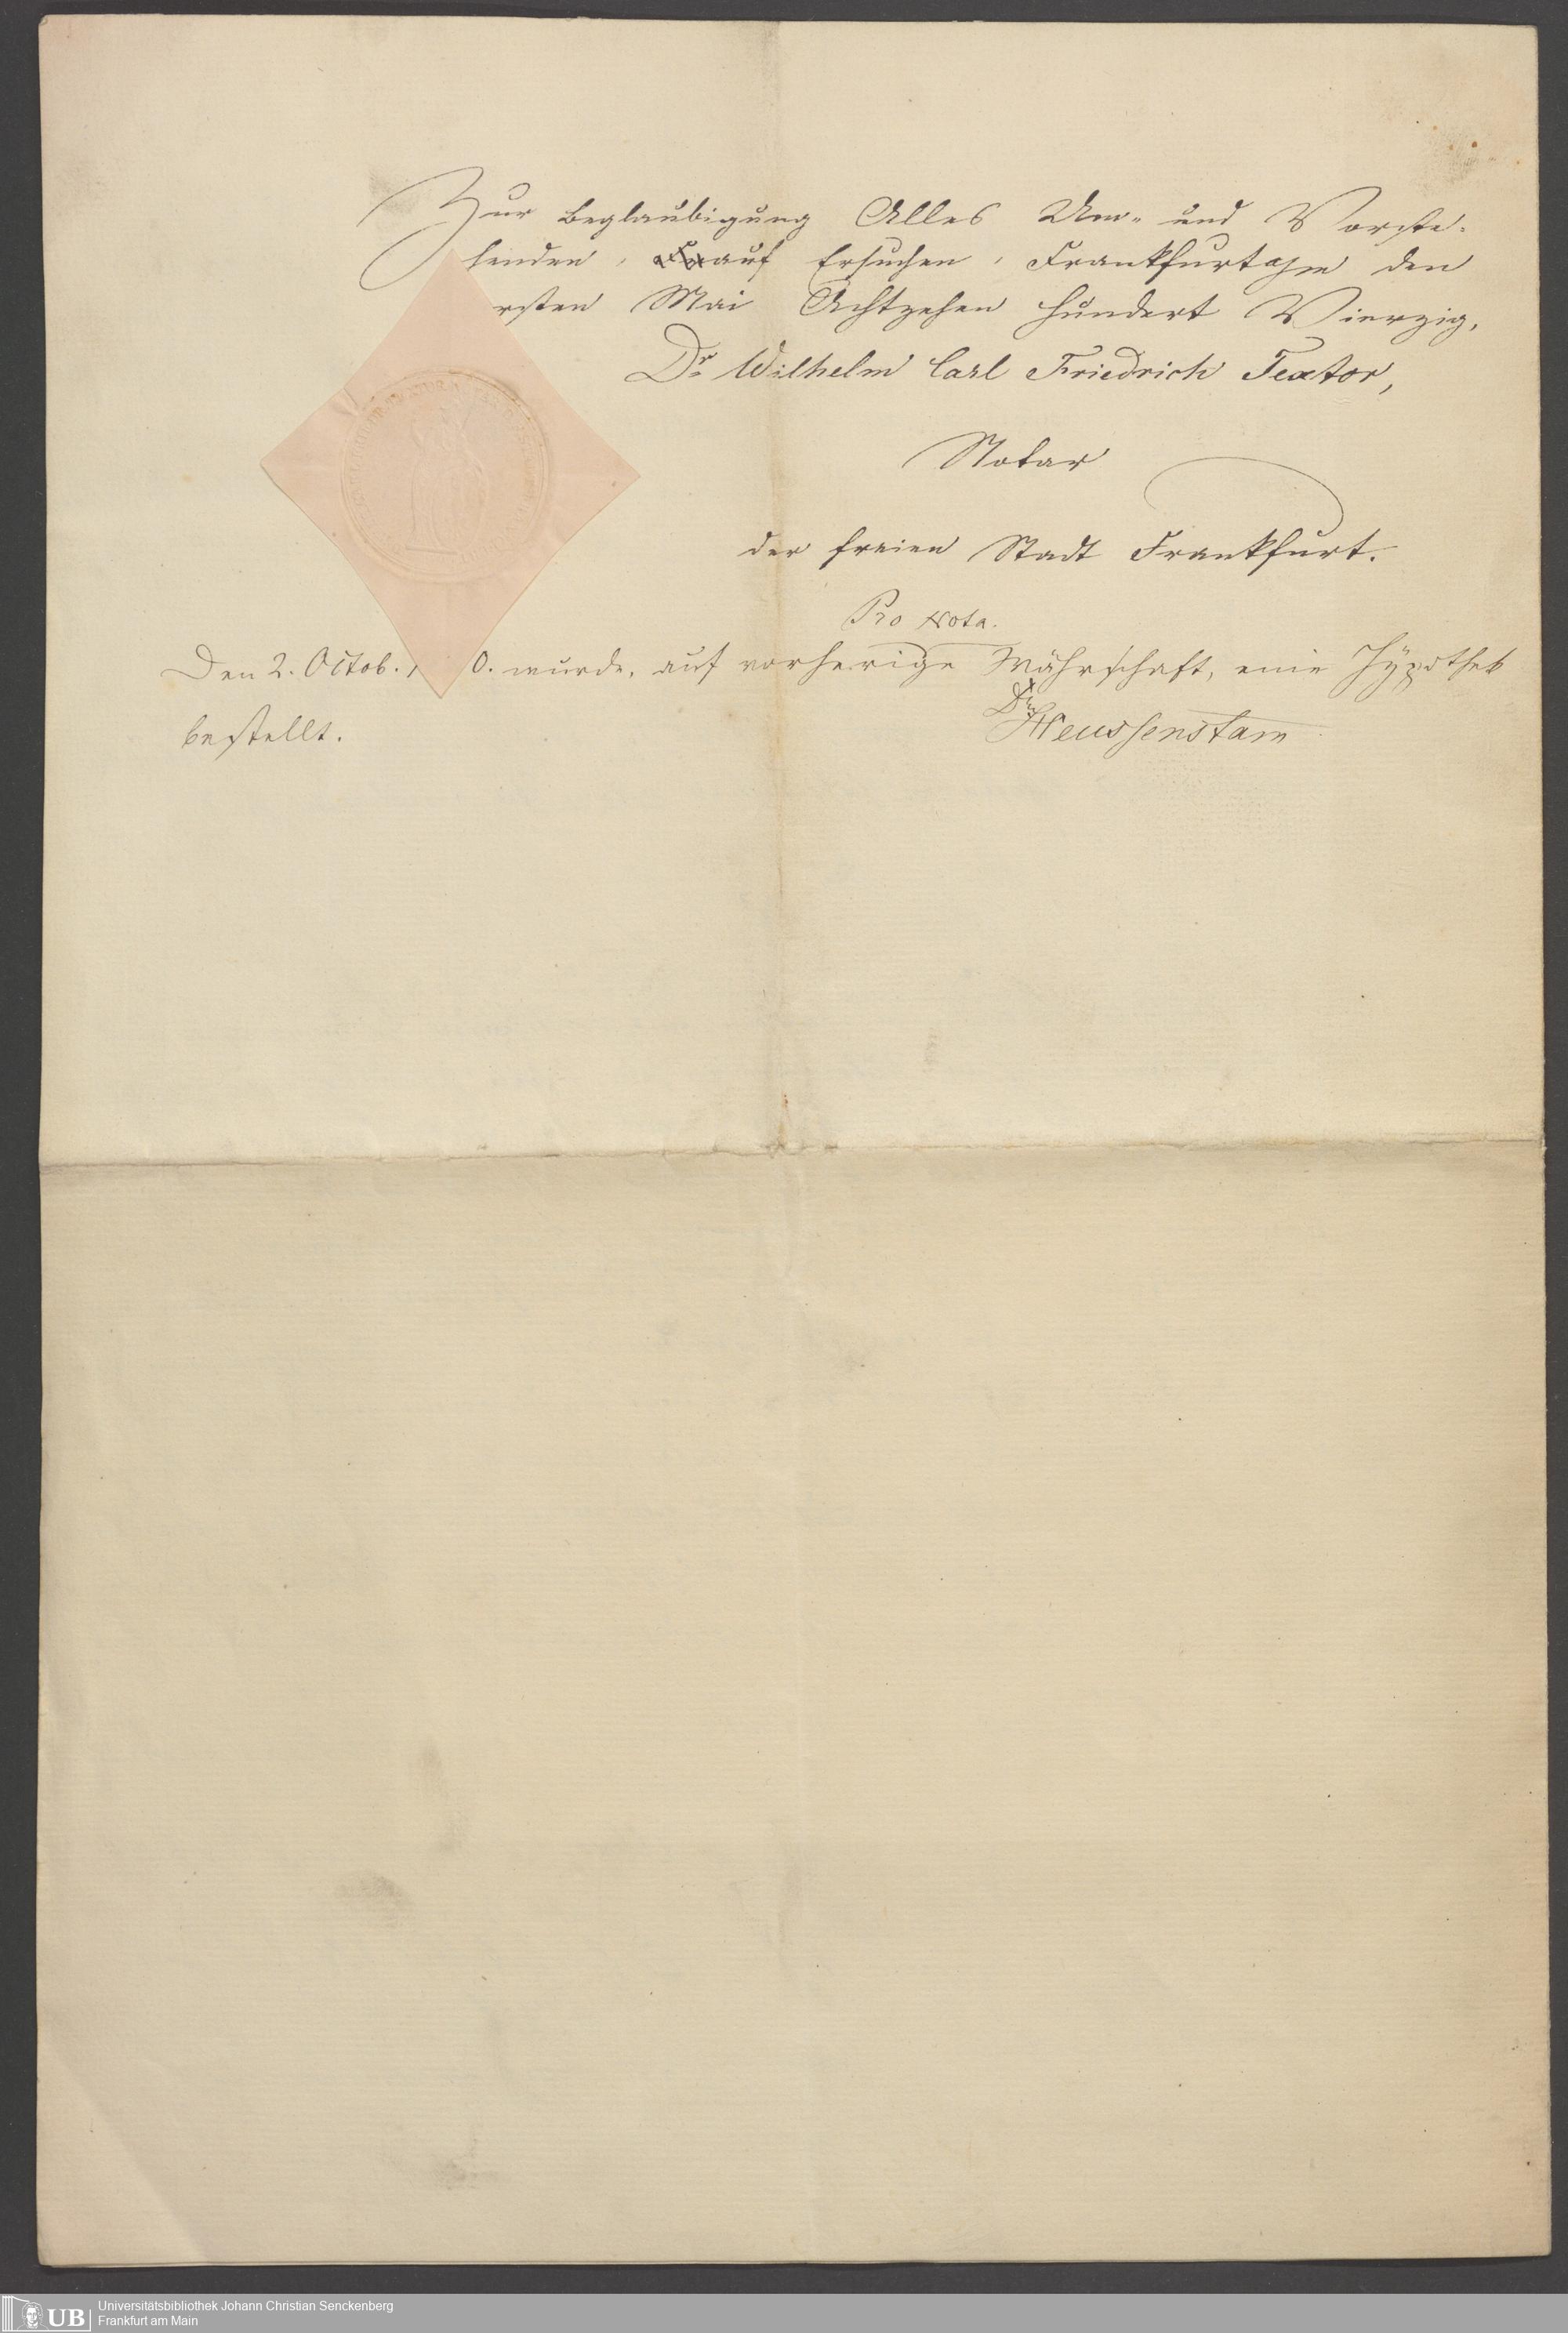 Zur Beglaubigung Alles Um- und Vorste-
henden, auf Ersuchen, Frankfurt a/m den
rsten Mai Achtzehen hundert Vierzig,
Dr. Wilhelm Carl Friedrich Textor,
Notar
der freien Stadt Frankfurt.
Pro Nota.
Den 2. Octob. 1 0. wurde, auf vorherige Währschaft, eine Hÿpothek
bestellt.
Dr. Heussenstam
UB
Universitätsbibliothek Johann Christian Senckenberg
Frankfurt am Main